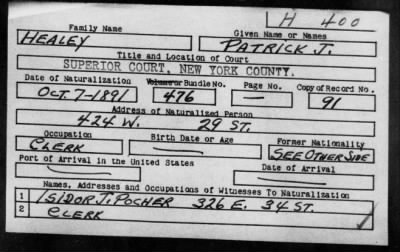 H 400
Family Name Given Name or Names
HEALEY PATRICK J.
Title and Location of Court
SUPERIOR COURT, NEW YORK COUNTY.
Date of Naturalization Volume or Bundle No. Page No. Copy of Record No.
OCT. 7-1891 476 — 91
Address of Naturalized Person
424 W. 29 ST.
Occupation Birth Date or Age Former Nationality
CLERK — SEE OTHER SIDE
Port of Arrival in the United States Date of Arrival
Names, Addresses and Occupations of Witnesses To Naturalization
1 ISIDOR J. POCHER 326 E. 34 ST.
2 CLERK